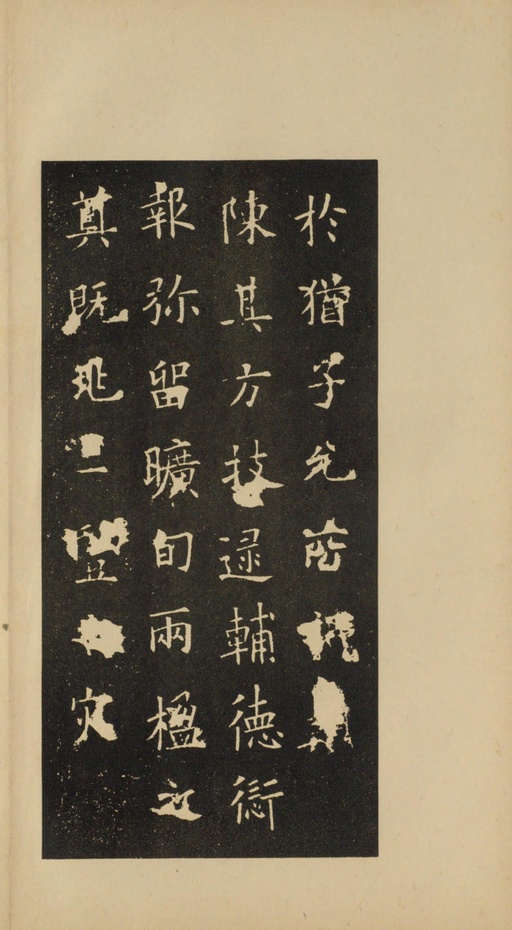 於猶子允
陳其方技逯輔德衍
報弥留曠旬兩楹之
奠既兆二竪灾